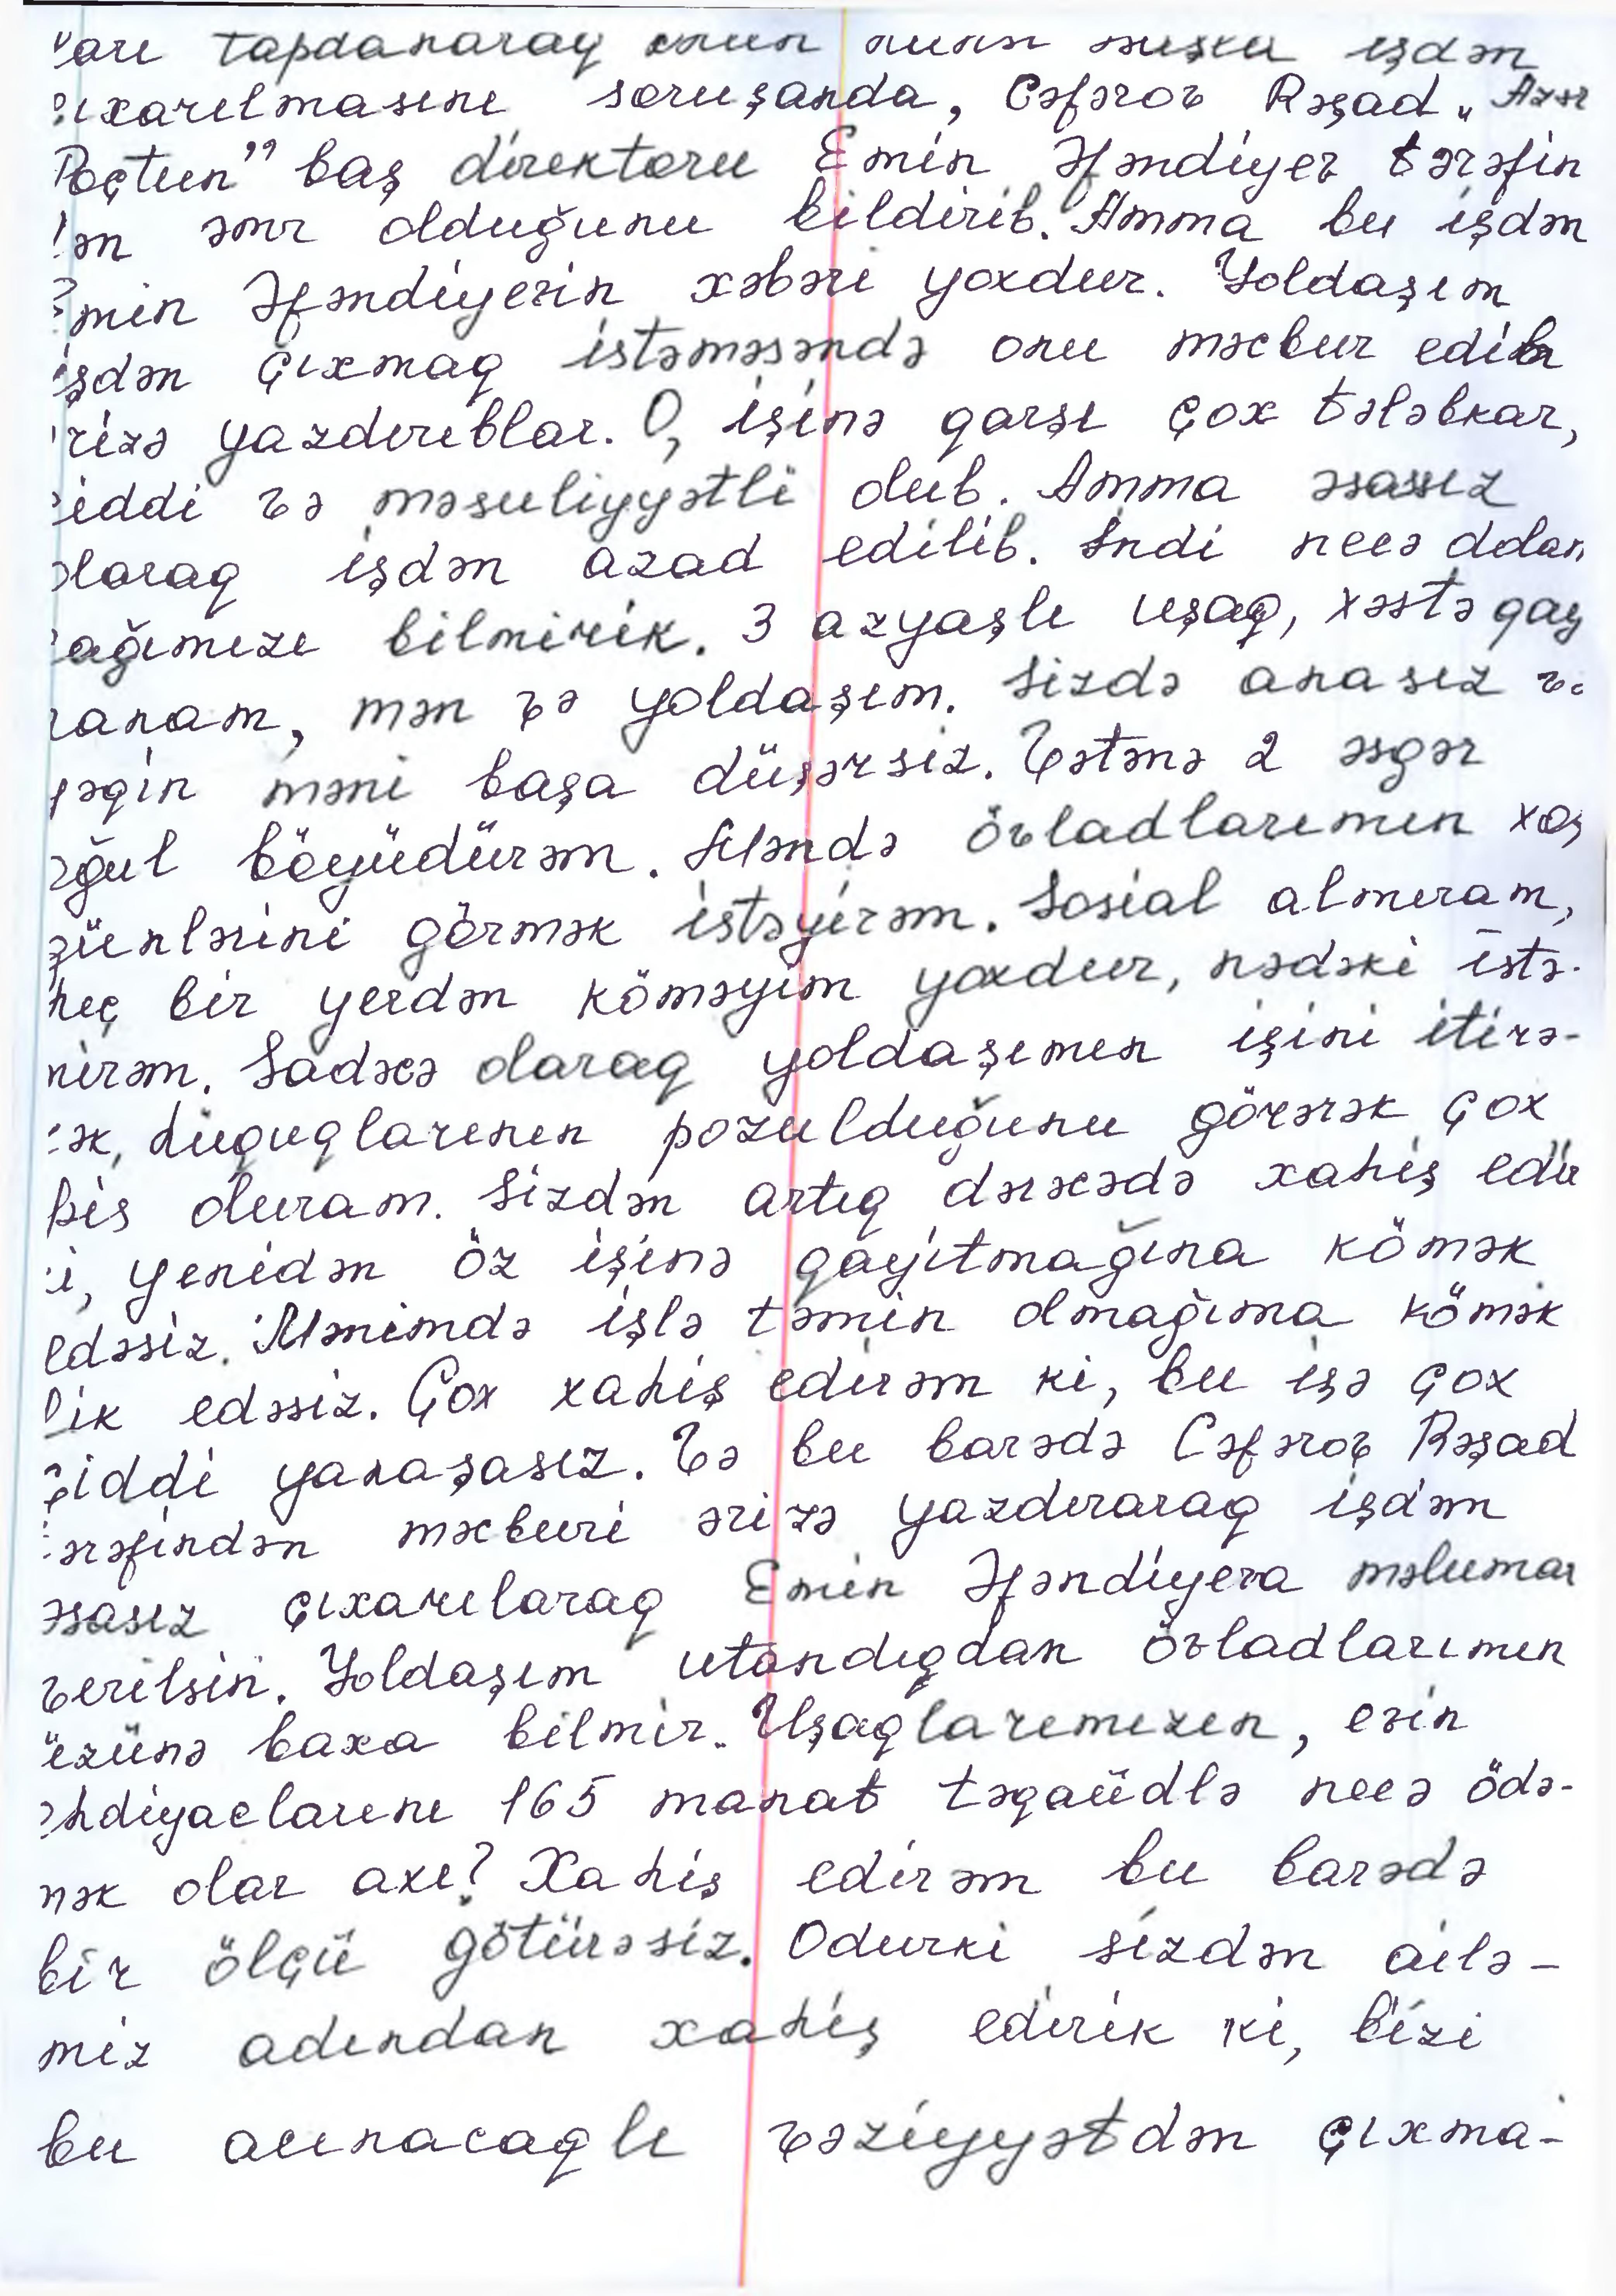 tapdanaraq işdən
çıxarılmasını soruşanda, Cəfərov Rəşad „Azər
Poçtun” baş direktoru Emin Əfəndiyev tərəfin
dən əmr olduğunu bildirib. Amma bu işdən
Emin Əfəndiyevin xəbəri yoxdur. Yoldaşım
işdən çıxmaq istəməsəndə onu məcbur edib
ərizə yazdırıblar. O, işinə qarşı çox tələbkar,
ciddi və məsuliyyətli olub. Amma əsassız
olaraq işdən azad edilib. İndi necə dolan
cağımızı bilmirik. 3 azyaşlı uşaq, xəstə qay
nanam, mən və yoldaşım. Sizdə anasız və
yəqin məni başa düşərsiz. Vətənə 2 əsgər
oğul böyüdürəm. Məndə övladlarımın xoş
günlərini görmək istəyirəm. Sosial almıram,
heç bir yerdən köməyim yoxdur, nədəki istə-
mirəm. Sadəcə olaraq yoldaşımın işini itirə-
rək, hüquqlarının pozulduğunu görərək çox
pis oluram. Sizdən artıq dərəcədə xahiş edir
ki, yenidən öz işinə qayıtmağına kömək
edəsiz. Mənimdə işlə təmin olmağıma kömək
lik edəsiz. Çox xahiş edirəm ki, bu işə çox
ciddi yanaşasız. Və bu barədə Cəfərov Rəşad
tərəfindən məcburi ərizə yazdıraraq işdən
əsasız çıxarılaraq Emin Əfəndiyevə məlumat
verilsin. Yoldaşım utandıqdan övladlarımın
üzünə baxa bilmir. Uşaqlarımızın, evin
ehdiyaclarını 165 manat təqaüdlə necə ödə-
mək olar axı? Xahiş edirəm bu barədə
bir ölçü götürəsiz. Odurki sizdən ailə-
miz adından xahiş edirik ki, bizi
bu acınacaqlı vəziyyətdən çıxma-